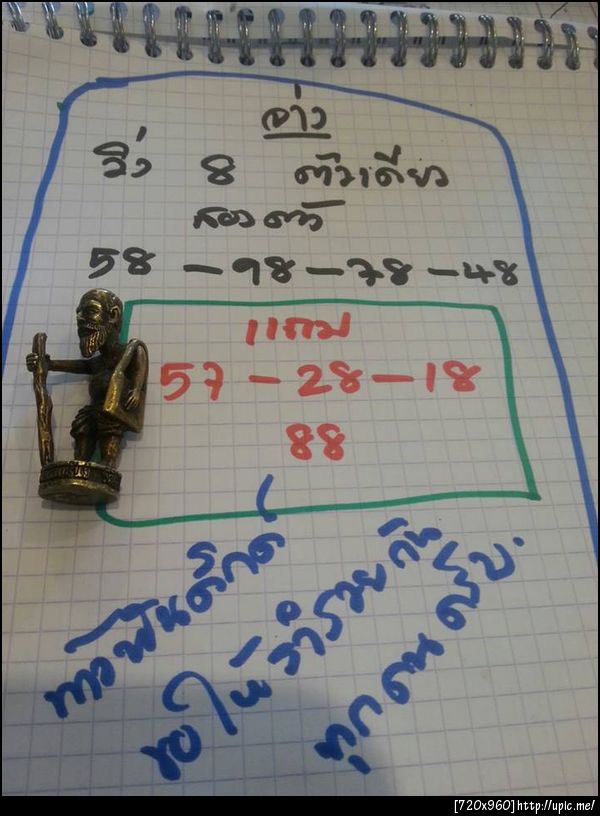 ล่าง
วิ่ง 8 ตัวเดียว
สองตัว
58 - 98 - 78 - 48
แถม
57 - 28 - 18
88
ขอให้ร่ำรวยกัน
ทุกคนครับ.
[720x960]http://upic.me/